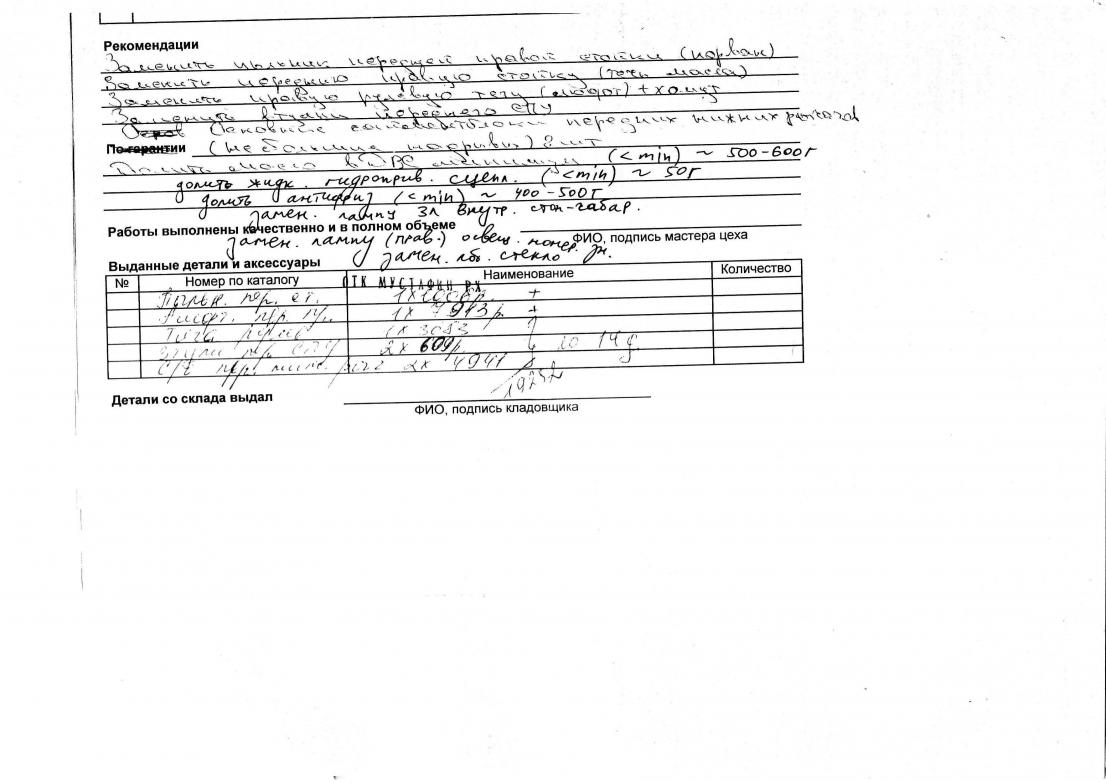 Рекомендации
Заменить пыльник передней правой стойки (порван)
Заменить переднюю правую стойку (течь масла)
Заменить правую рулевую тягу (люфт) + хомут
Заменить втулки переднего СПУ
Основные сайлентблоки передних нижних рычагов
По гарантии (небольшие надрывы) 2 шт
Долить масло в ДВС минимум (<min) ~ 500-600г
долить жидк. гидроприв. сцепл. (<min) ~ 50г
долить антифриз (<min) ~ 400-500г
замен. лампу зл внутр. стоп-габар.
Работы выполнены качественно и в полном объеме
ФИО, подпись мастера цеха
замен. лампу (прав.) освещ. номер. зн.
замен. лоб. стекло
Выданные детали и аксессуары
№ Номер по каталогу Наименование Количество
ОТК МУСТАФИН Р.Х.
Пыльн. пер. ст. 1х +
Аморт. пр. 1х 7913р +
Тяга рулев 1х 3083
Втулки пер. СПУ 2х 609р. до 14д
С/б пер. нижн. рыч 2х 4941
Детали со склада выдал
ФИО, подпись кладовщика